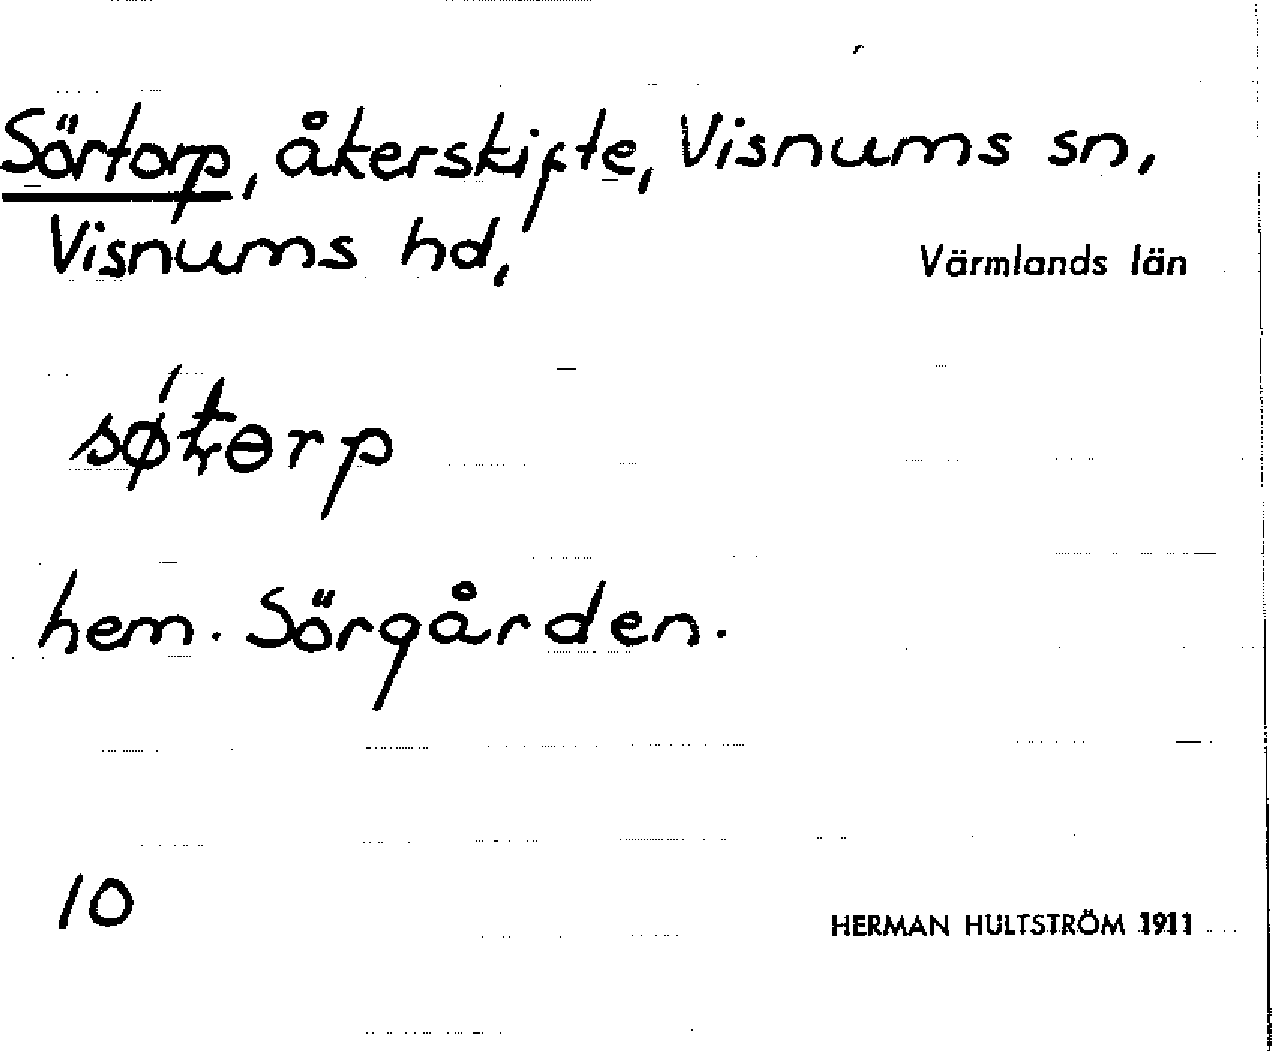 Sörtorp, åkerskifte, Visnums sn,
Visnums hd, Värmlands län
sǿtɵrp
hem. Sörgården.
10
HERMAN HULTSTRÖM 1911